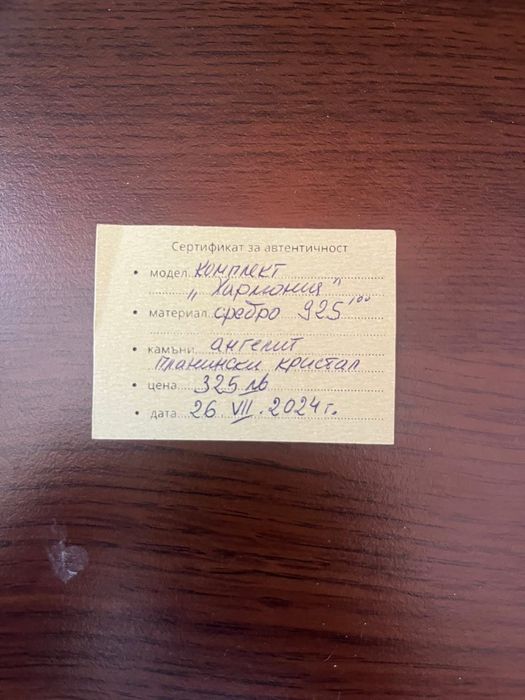 Сертификат за автентичност
• модел. Комплект
„ Хармония "
• материал. сребро 925
• камъни. ангелит
планински кристал
• цена. 325 лв
• дата. 26 VII. 2024 г.